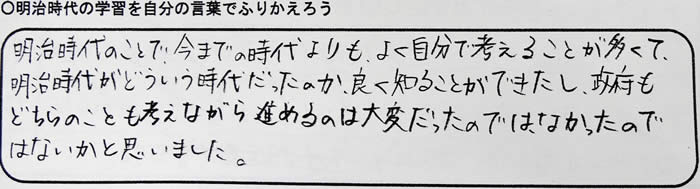 〇明治時代の学習を自分の言葉でふりかえろう
明治時代のことで、今までの時代よりも、よく自分で考えることが多くて、
明治時代がどういう時代だったのか、良く知ることができたし、政府も
どちらのことも考えながら進めるのは大変だったのではなかったので
はないかと思いました。